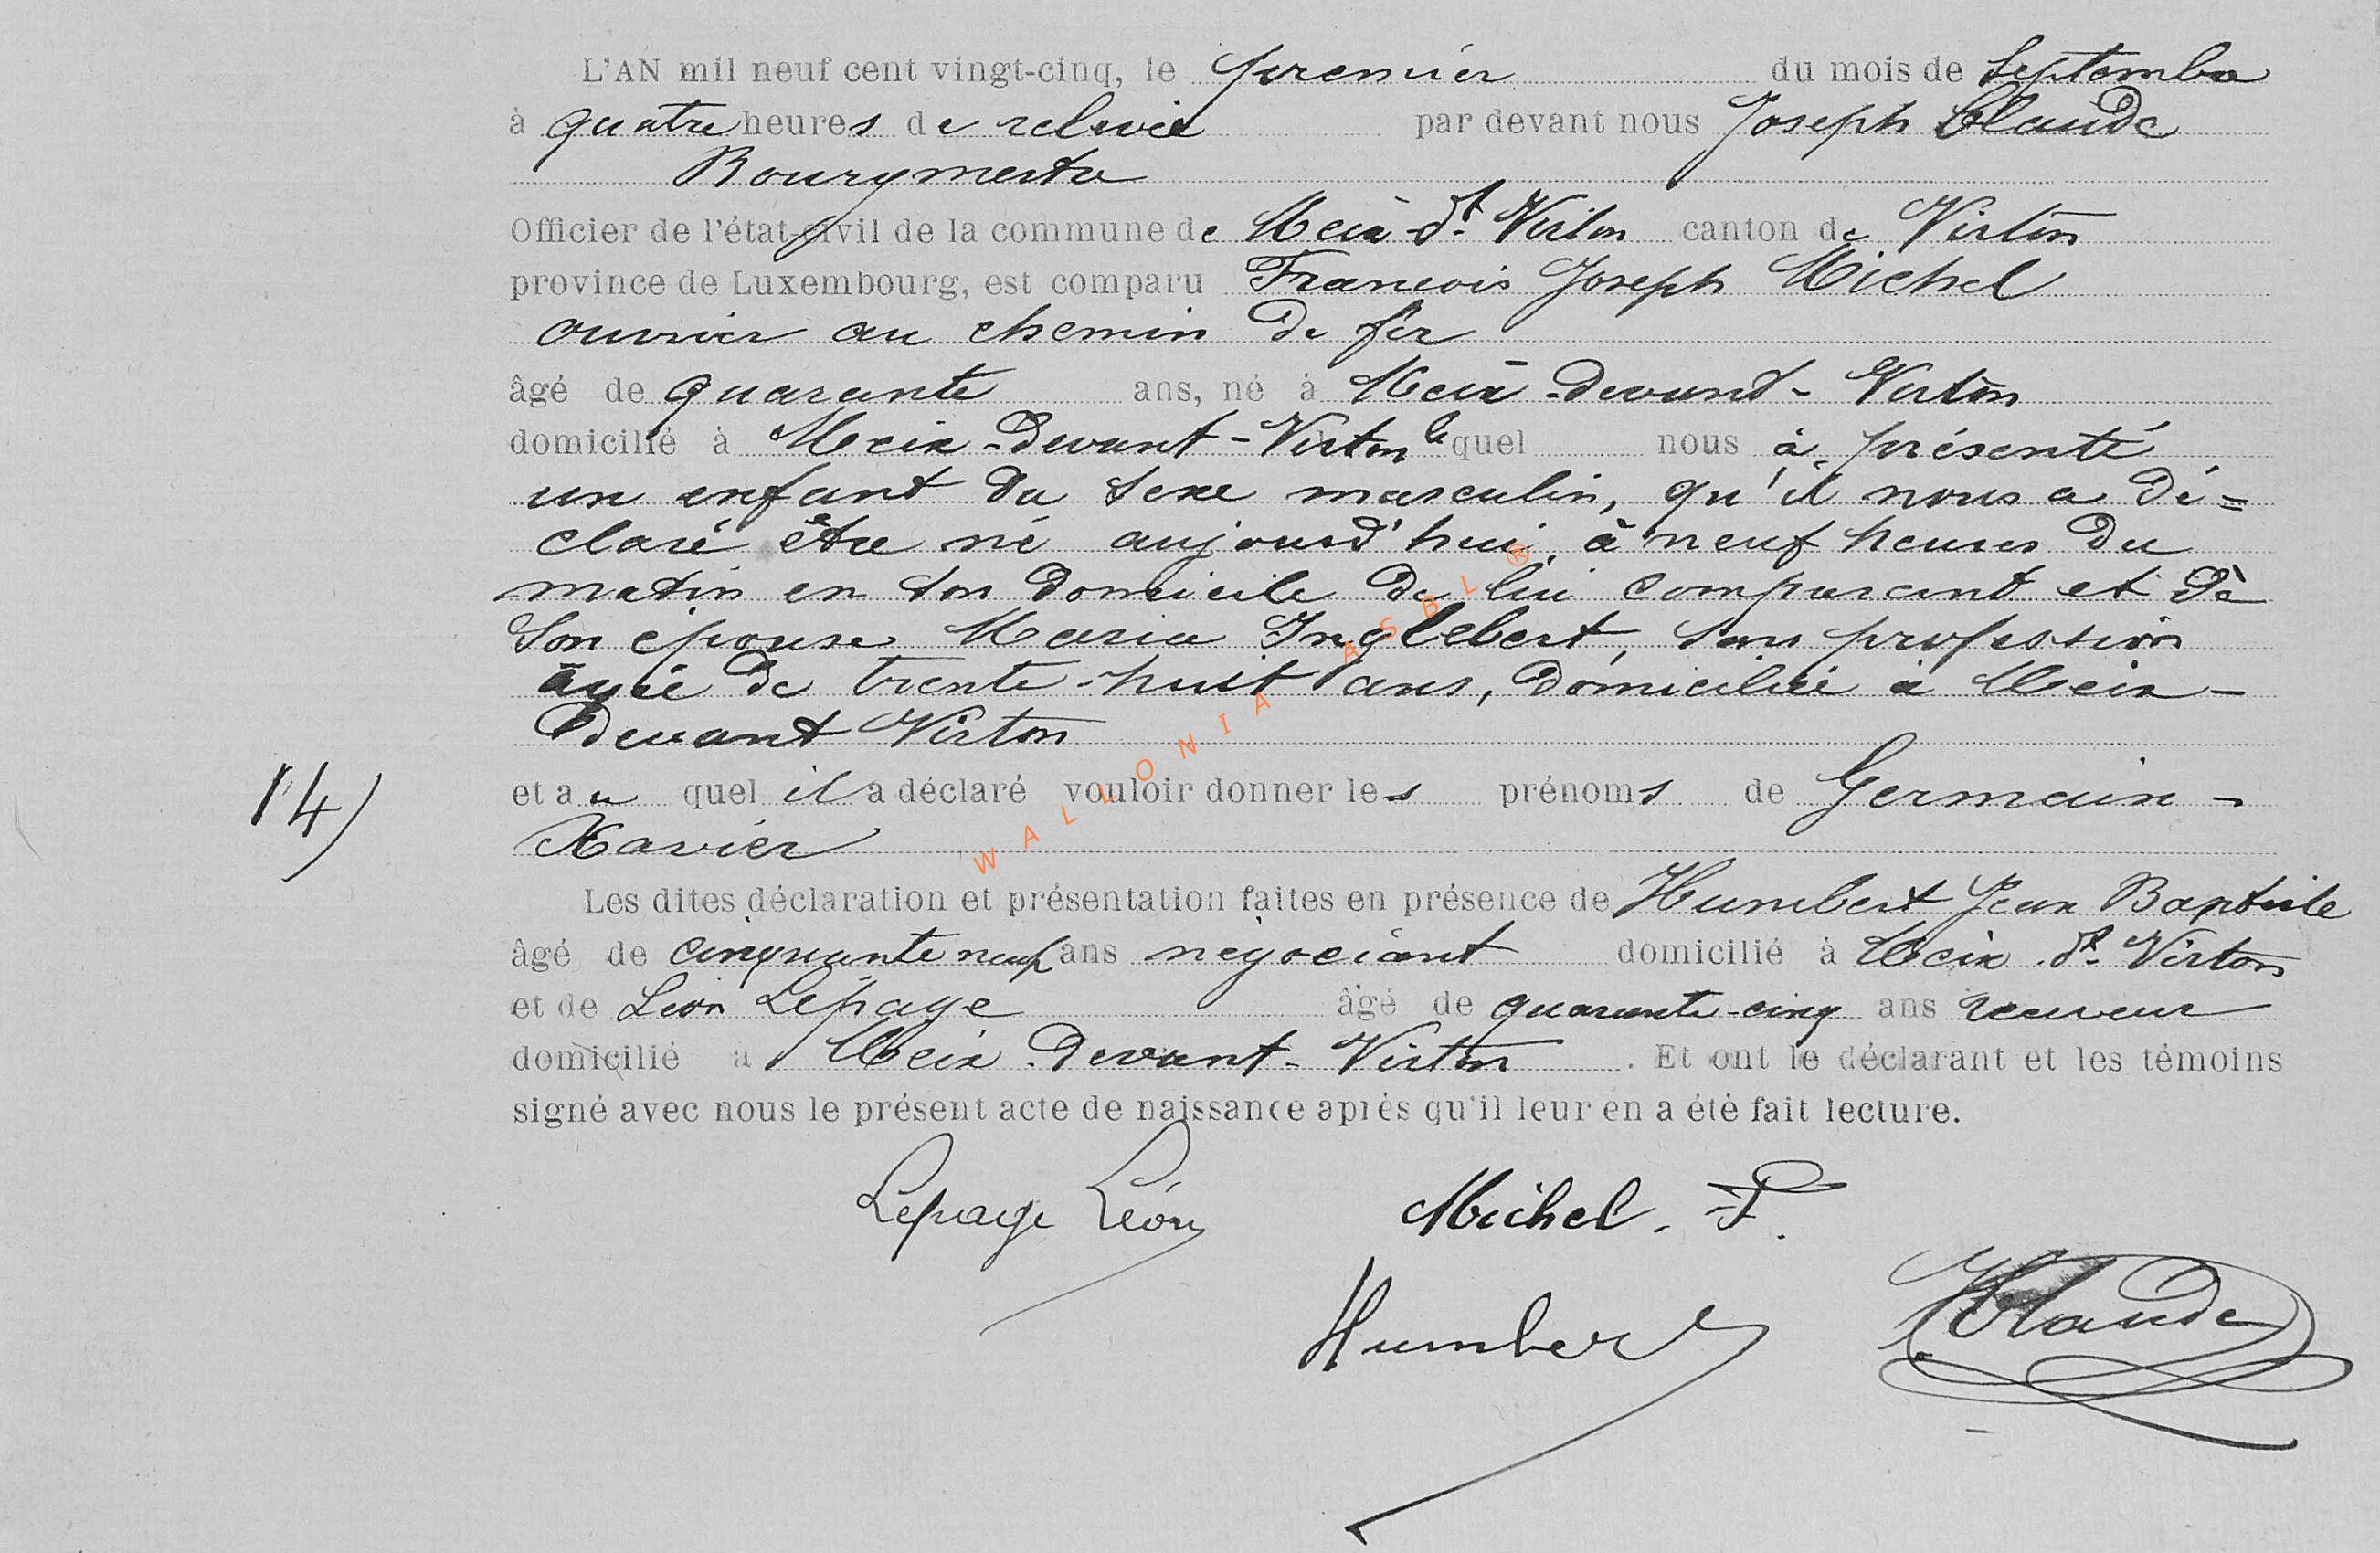 L'AN mil neuf cent vingt-cinq, le premier du mois de Septembre
à quatre heures de relevée par devant nous Joseph Claude
Bourgmestre
Officier de l'état-civil de la commune de Meix-dt Virton canton de Virton
province de Luxembourg, est comparu Francois Joseph Michel
ouvrier au chemin de fer
âgé de quarante ans, né à Meix-devant-Virton
domicilié à Meix-Devant-Virton lequel nous à présenté
un enfant du sexe masculin, qu'il nous a dé=
claré être né aujourd'hui, à neuf heures du
matin en son domicile de lui comparant et de
Son épouse Maria Inglebert, sans profession
âgée de trente-huit ans, domiciliée à Meix-
Devant Virton
14) et au quel il a déclaré vouloir donner les prénoms de Germain-
Xavier
Les dites déclaration et présentation faites en présence de Humbert Jean Baptiste
âgé de cinquante neuf ans négociant domicilié à Meix dt Virton
et de Léon Lépage âgé de quarante-cinq ans receveur
domicilié à Meix-Devant-Virton. Et ont le déclarant et les témoins
signé avec nous le présent acte de naissance après qu'il leur en a été fait lecture.
Lepage Léon Michel. F.
Humbert JClaude
WALLONIA ASBL ®